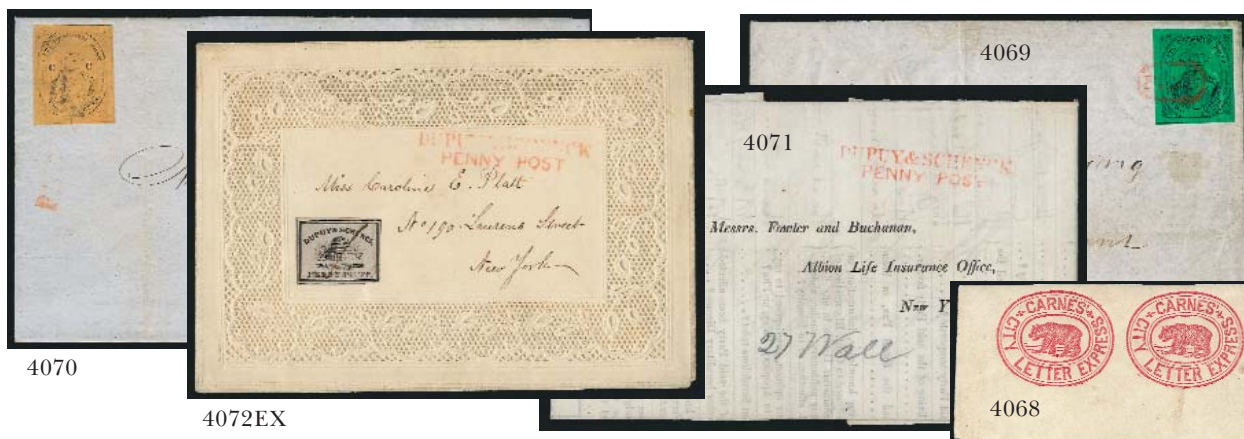 4070
DUPUY & SCHENCK
PENNY POST
Miss Caroline E. Platt
No 190 Laurens Street
New York
DUPUY & SCHENCK
PENNY POST
4072EX
4071
DUPUY & SCHENCK
PENNY POST
Messrs. Fowler and Buchanan,
Albion Life Insurance Office,
New Y
27 Wall
4069
CARNES'
CITY LETTER EXPRESS
CARNES'
CITY LETTER EXPRESS
4068